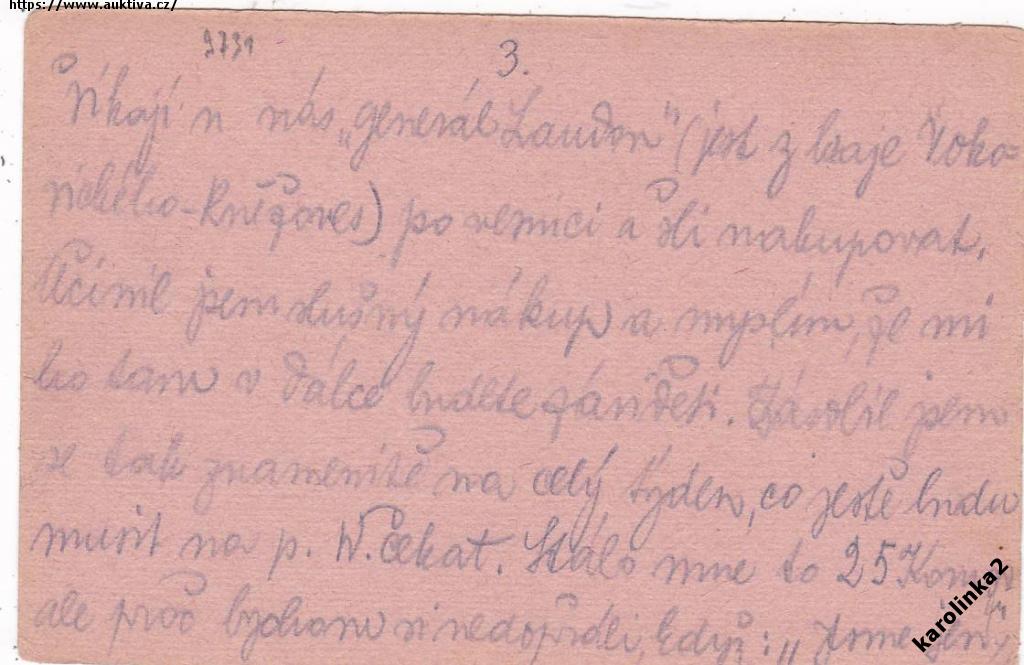 https://www.auktiva.cz/
9731
3.
Říkají u nás „generál Laudon" (jest z kraje Roko-
nického-Kněževes) po vesnici a šli nakupovat.
Učinil jsem slušný nákup a myslím, že mi
ho tam v dálce budete závidět. Zásobil jsem
se tak znamenitě na celý týden, co ještě budu
musit na p. W. čekat. Stálo mne to 25 Korun
ale proč bychom si nedopřáli, když: „
karolinka2